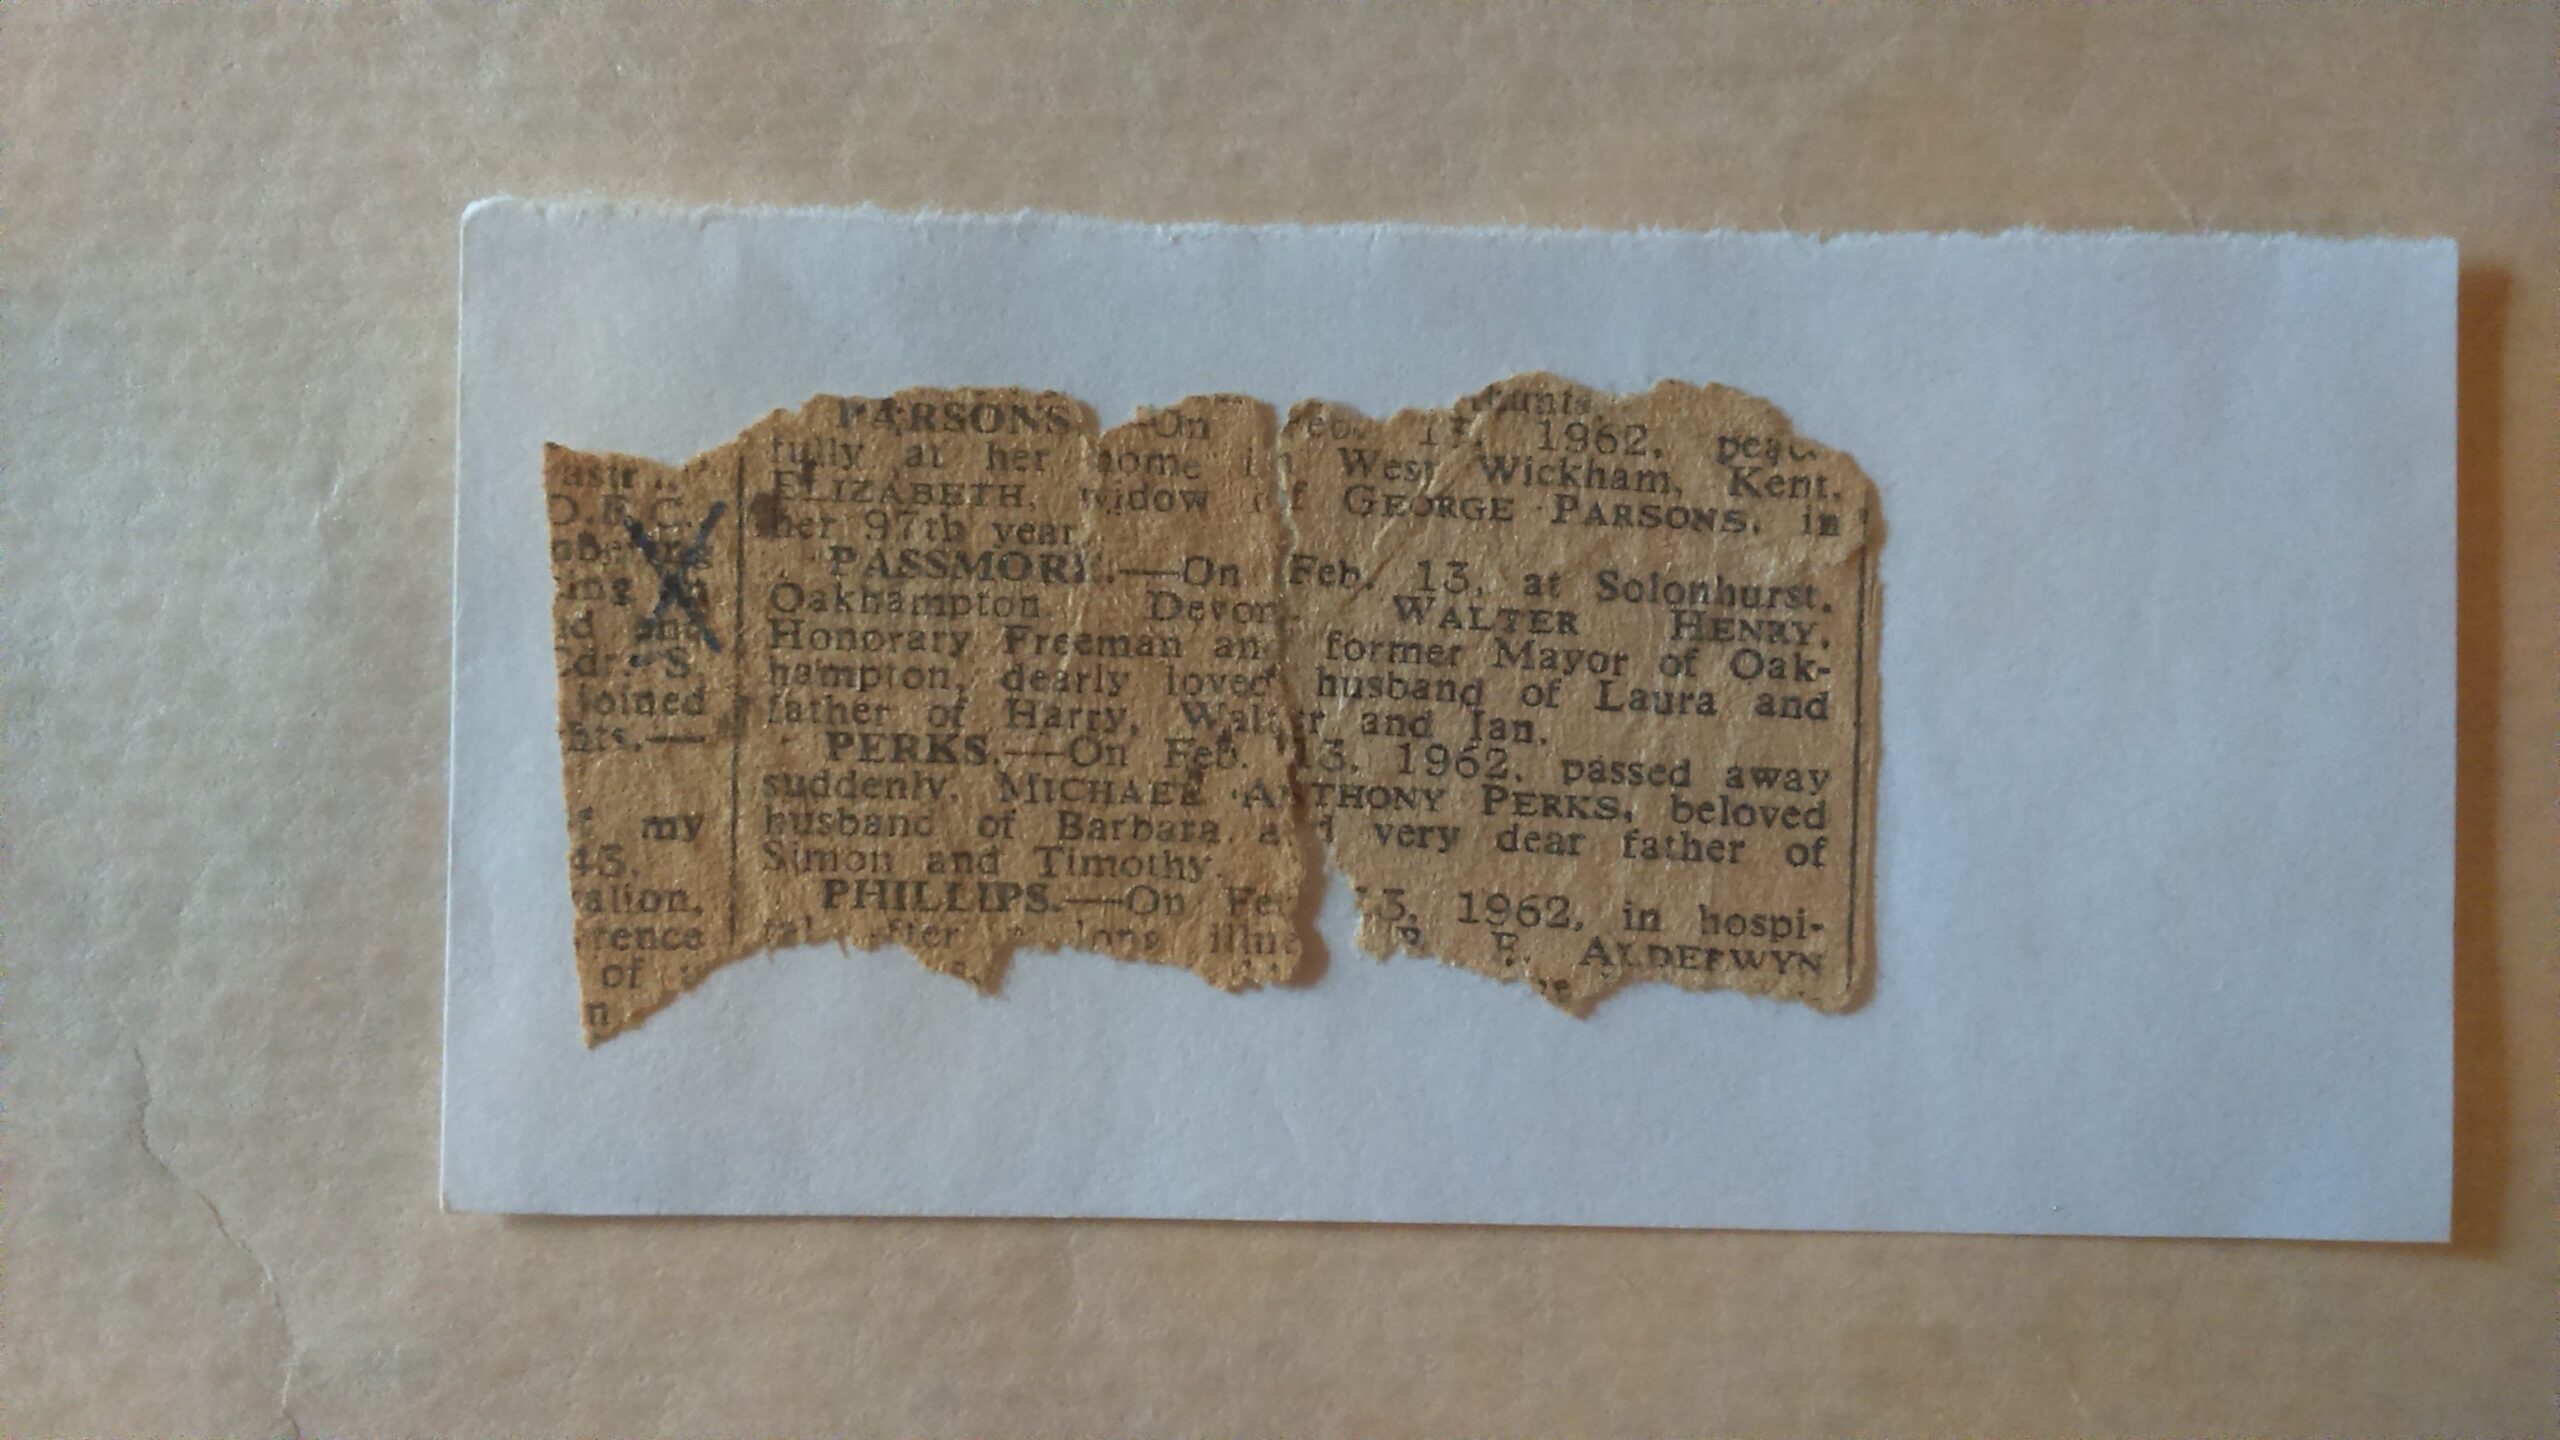 D.F.C.
and
Cdr. S.
joined
my
43.
of
unts.
PARSONS.—On Feb. 13, 1962, peac
fully at her home in West Wickham, Kent,
ELIZABETH, widow of GEORGE PARSONS, in
her 97th year.
PASSMORE.—On Feb. 13, at Solonhurst,
Oakhampton, Devon, WALTER HENRY,
Honorary Freeman and former Mayor of Oak-
hampton, dearly loved husband of Laura and
father of Harry, Walter and Ian.
PERKS.—On Feb. 13, 1962, passed away
suddenly, MICHAEL ANTHONY PERKS, beloved
husband of Barbara and very dear father of
Simon and Timothy.
PHILLIPS.—On Feb. 13, 1962, in hospi-
tal after a long illne